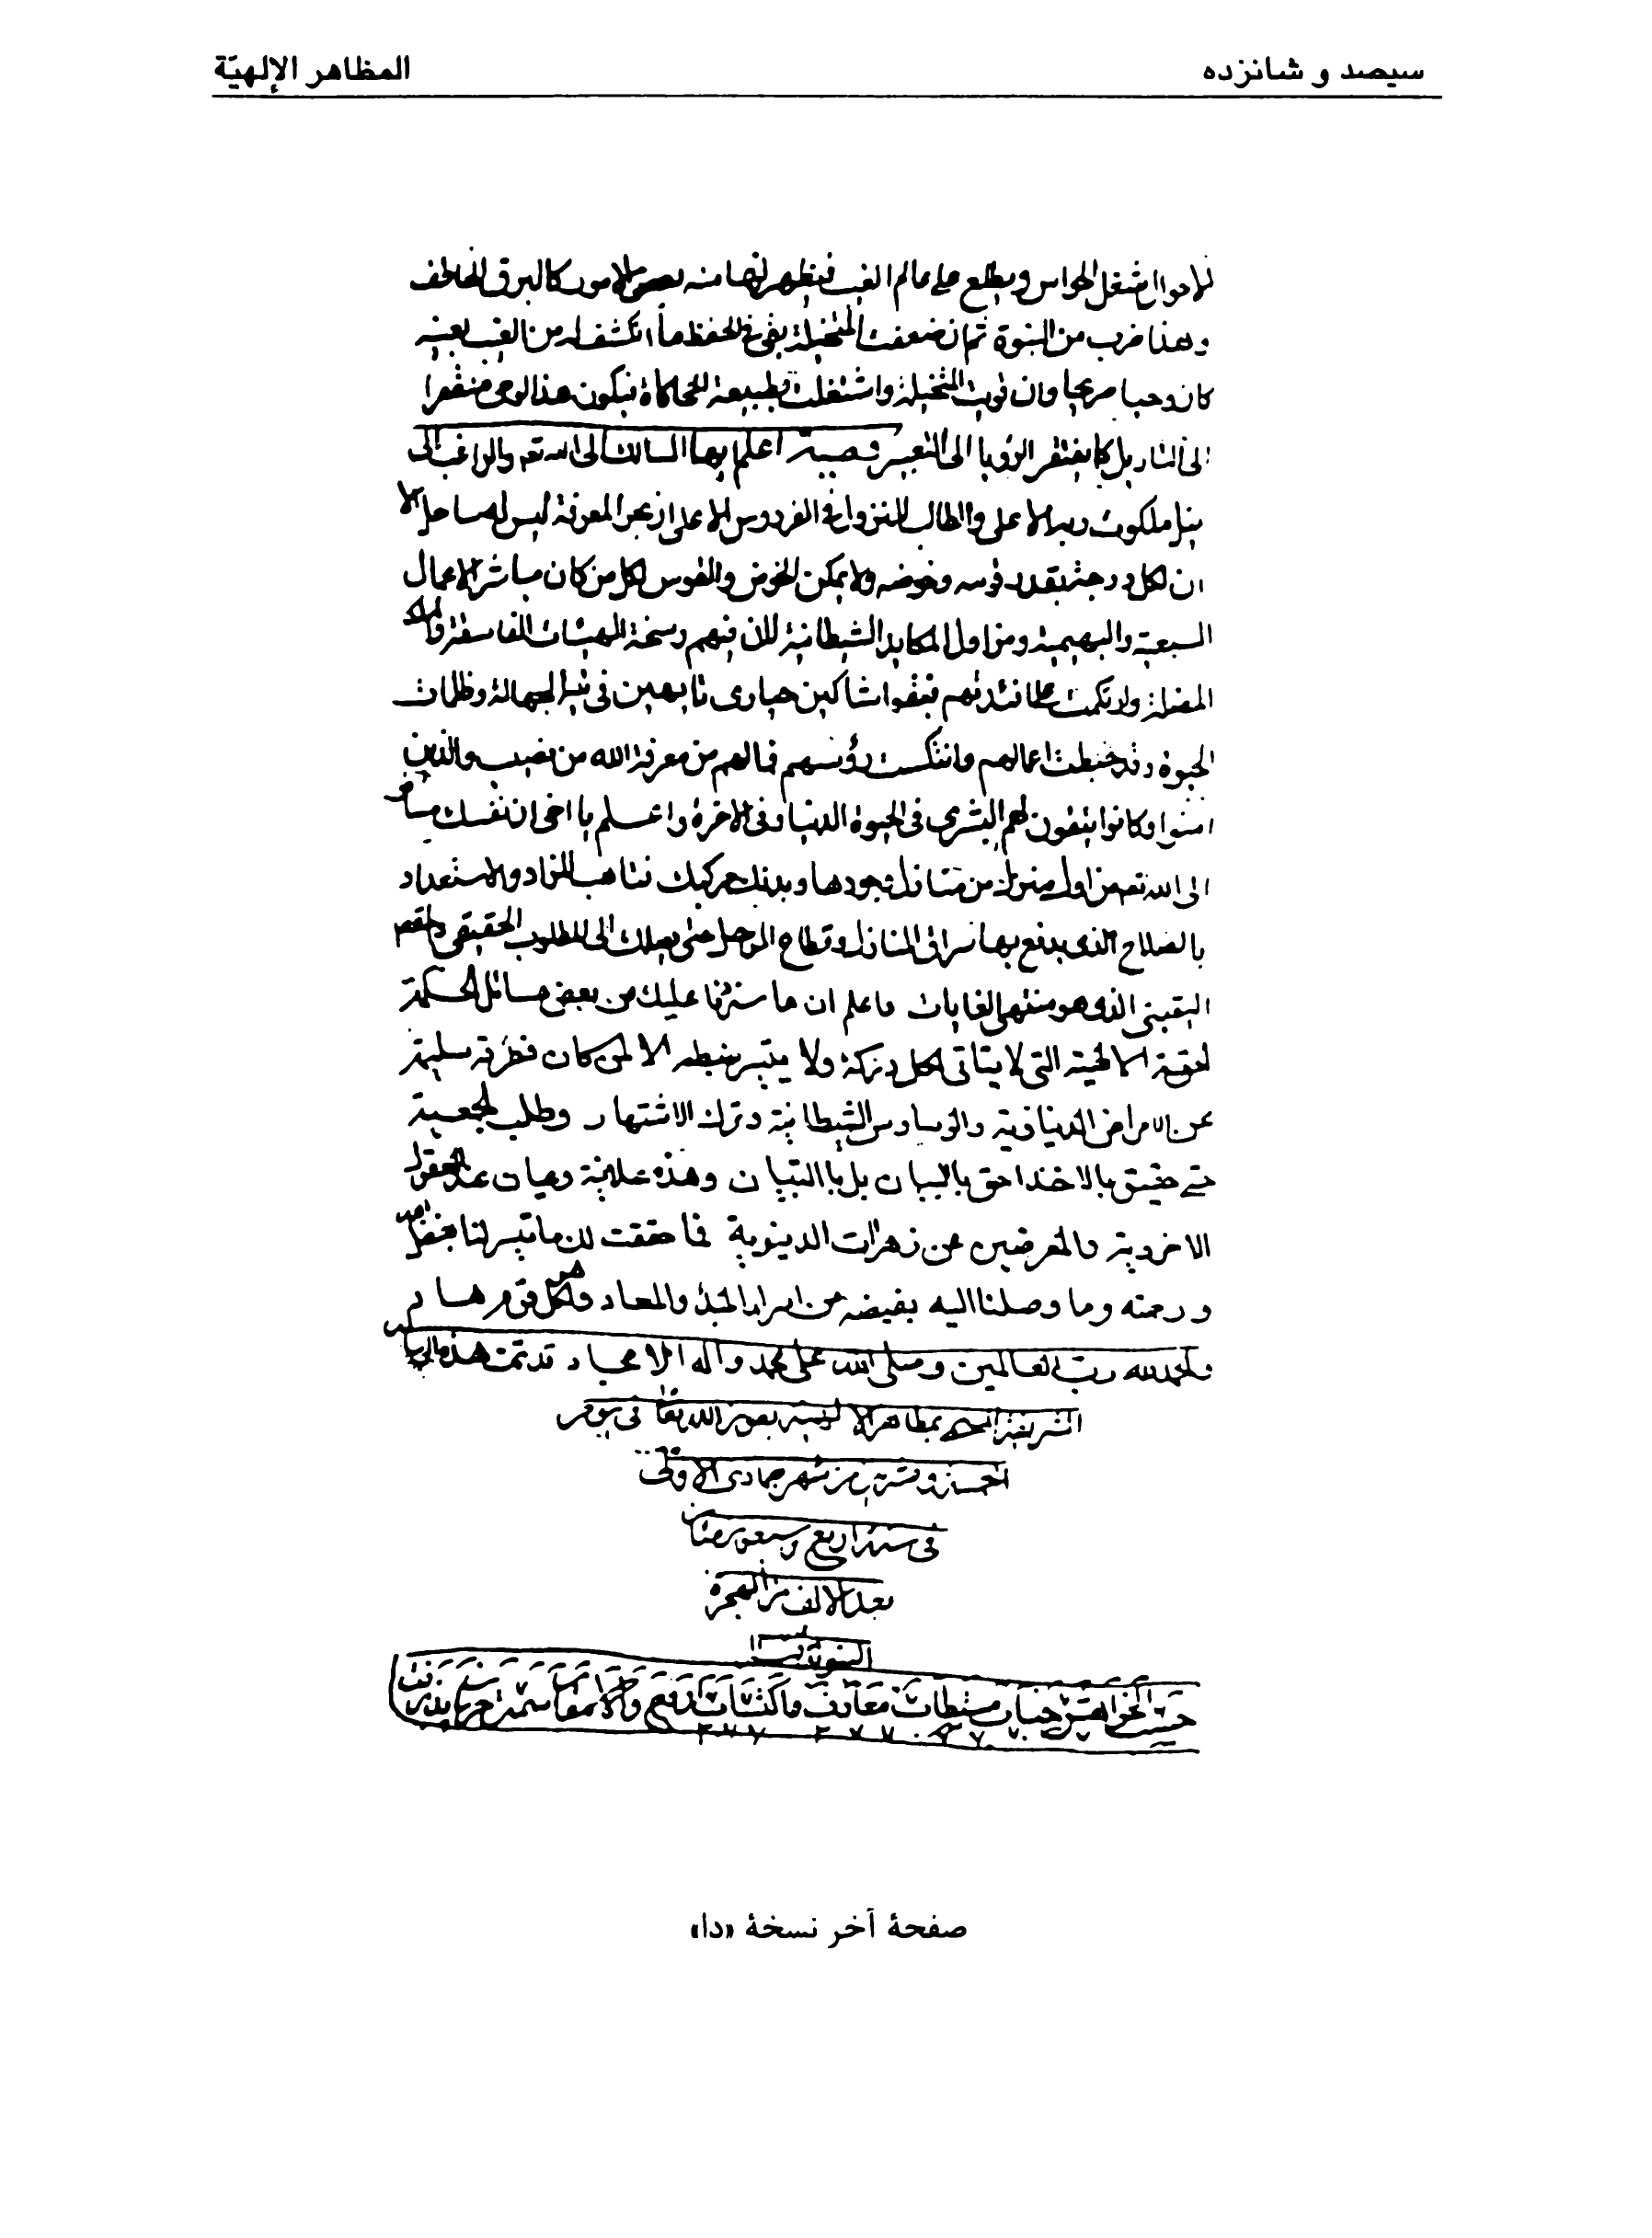 سيصد و شانزده
المظاهر الإلهيّة
الاحوال شغل الحواس ويطلع على عالم الغيب فيظهر لها منه بعض الامور كالبرق الخاطف
وهذا ضرب من النبوة ثم ان ضعفت المتخيلة بقى فى الحفظ ما انكشف له من الغيب بعينه
كان وحيا صريحا وان قويت المتخيلة واشتغلت بطبيعة المحاكاة فيكون هذا الوحى مفتقرا
الى التاويل كما يفتقر الرؤيا الى التعبير وصية اعلم ايها السالك الى الله تعم والراغب الى
نيل ملكوت ربه الاعلى والطالب للنزول فى الفردوس الاعلى ان بحر المعرفة ليس له ساحل الا
ان لكل درجة بقدر غوصه وخوضه ولا يمكن الخوض والغوص لكل من كان مباشر الاعمال
السبعية والبهيمية ومزاول المكايد الشيطانية لان فيهم رسخت الهيئات الفاسقة والملكة
المضلة وارتكمت على افئدتهم فبقوا شاكين حيارى تايهين فى تيه الجهالة وظلمات
الحيوة وقد حبطت اعمالهم وانتكست رؤسهم فما لهم من معرفة الله من نصيب والذين
امنوا وكانوا يتقون لهم البشرى فى الحيوة الدنيا وفى الاخرة واعلم يا اخى ان نفسك مسافر
الى الله تعم من اول منزل من منازل وجودها وبدنك مركبك تتاهب للزاد والاستعداد
بالصلاح الذى يدفع بها سراق المنازل وقطاع المراحل حتى يصلك الى المطلوب الحقيقى والمقصد
اليقينى الذى هو منتهى الغايات واعلم ان ما سردنا عليك من بعض مسائل الحكمة
الحقة الالهية التى لا يتاتى لكل درکه ولا يتيسر ضبطه الا لمن كان فطرته سليمة
عن الامراض الدنياوية والوساوس الشيطانية وترك الاشتهار وطلب الجمعية
حتى حقيق بالاخذ احق بالبيان بل بالتبيان وهذه علانية
الاخروية والمعرضين عن زهرات الدينوية فما حققت لك ما تيسر لنا بفضل الله
ورحمته وما وصلنا اليه بفيضه من اسرار المبدا والمعاد ولكل قوم هاد
والحمد لله رب العالمين وصلى الله على محمد وآله الامجاد قد تمت هذه الرسالة
الشريفة بمظاهر الالهية بعون الله تعالى فى يوم
الخمسة وعشرين من شهر جمادى الاولى
فى سنة اربع
بعد الالف من الهجرة
النبوية
صفحۀ آخر نسخۀ «دا»